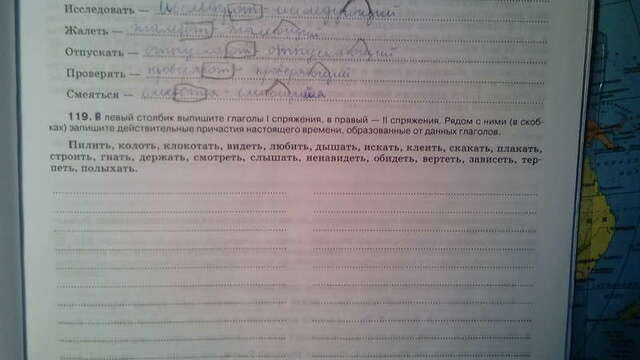 Исследовать — исследуют исследующий
Жалеть — жалеют жалеющий
Отпускать — отпускают отпускающий
Проверять — проверяют проверяющий
Смеяться — смеются смеющийся
119. В левый столбик выпишите глаголы I спряжения, в правый — II спряжения. Рядом с ними (в скоб-
ках) запишите действительные причастия настоящего времени, образованные от данных глаголов.
Пилить, колоть, клокотать, видеть, любить, дышать, искать, клеить, скакать, плакать,
строить, гнать, держать, смотреть, слышать, ненавидеть, обидеть, вертеть, зависеть, тер-
петь, полыхать.